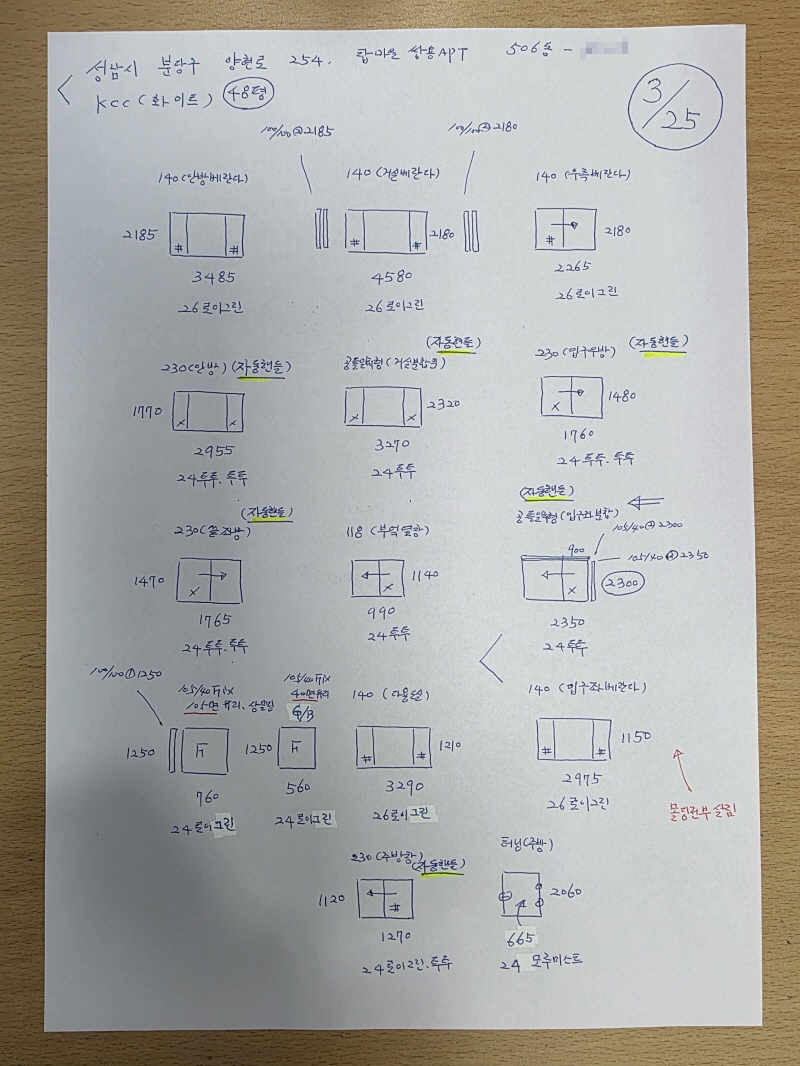 성남시 분당구 양현로 254. 탑마을 쌍용APT 506동 -
kcc (화이트) 48평
3/25
100/100 ② 2185
100/100 ② 2180
140 (안방베란다)
2185
3485
26 로이그린
140 (거실베란다)
2180
4580
26 로이그린
140 (우측베란다)
2180
2265
26 로이그린
230 (안방) (자동핸들)
1770
2955
24 투투. 투투
(자동핸들)
공틀일체형 (거실분합)
2320
3270
24 투투
230 (입구우방) (자동핸들)
1480
1760
24 투투. 투투
(자동핸들)
230
1470
1765
24 투투. 투투
118 (부엌옆창)
1140
990
24 투투
(자동핸들)
공틀일체형 (입구좌분합)
105/40 2300
900
105/40 2350
2300
2350
24 투투
100/100 ① 1250
105/40 Fix
105면 유리.
1250
F
760
24 로이그린
105/40 Fix
40면유리
G/B
1250
F
560
24 로이그린
140 (다용실)
1210
3290
26 로이그린
140 (입구좌베란다)
1150
2975
26 로이그린
몰딩전부 살림
230 (주방창)
(자동핸들)
1120
1270
24 로이그린. 투투
터닝 (주방)
2060
665
24 모루미스트